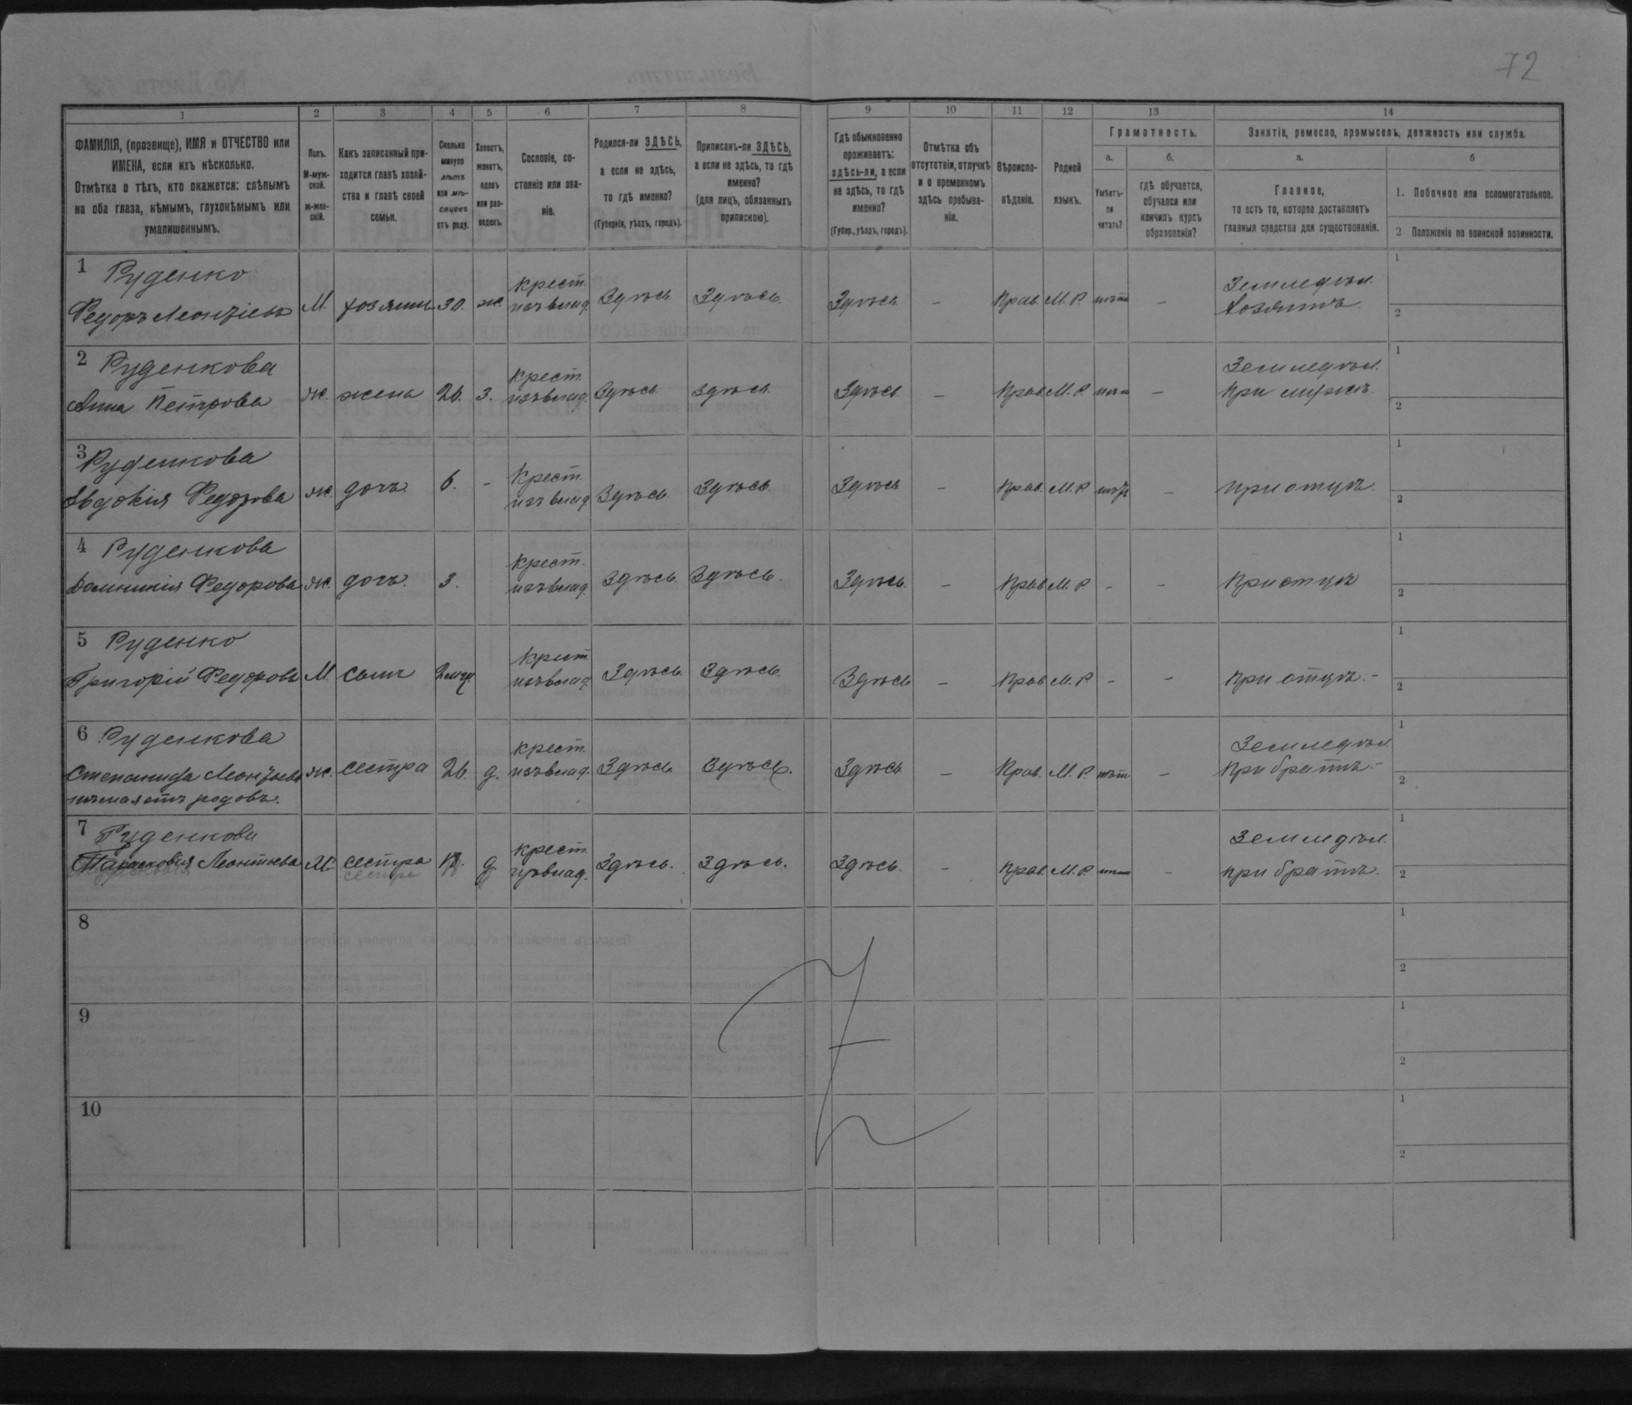 72
1 2 3 4 5 6 7 8 9 10 11 12 13 14
ФАМИЛІЯ, (прозвище), ИМЯ и ОТЧЕСТВО или
ИМЕНА, если ихъ нѣсколько.
Отмѣтка о тѣхъ, кто окажется: слѣпымъ
на оба глаза, нѣмымъ, глухонѣмымъ или
умалишеннымъ.
Полъ.
М-муж-
ской.
ж-жен-
скій.
Какъ записанный при-
ходится главѣ хозяй-
ства и главѣ своей
семьи.
Сколько
минуло
лѣтъ
или мѣ-
сяцевъ
отъ роду.
Холостъ,
женатъ,
вдовъ
или раз-
веденъ.
Сословіе, со-
стояніе или зва-
ніе.
Родился-ли ЗДѢСЬ,
а если не здѣсь,
то гдѣ именно?
(Губернія, уѣздъ, городъ).
Приписанъ-ли ЗДѢСЬ,
а если не здѣсь, то гдѣ
именно?
(для лицъ, обязанныхъ
припискою).
Гдѣ обыкновенно
проживаетъ:
здѣсь-ли, а если
не здѣсь, то гдѣ
именно?
(Губер., уѣздъ, городъ).
Отмѣтка объ
отсутствіи, отлучкѣ
и о временномъ
здѣсь пребыва-
ніи.
Вѣроиспо-
вѣданіе.
Родной
языкъ.
Грамотность.
а.
Умѣетъ-
ли
читать?
б.
гдѣ обучается,
обучался или
кончилъ курсъ
образованія?
Занятія, ремесло, промыселъ, должность или служба.
а.
Главное,
то есть то, которое доставляетъ
главныя средства для существованія.
б
1. Побочное или вспомогательное.
2 Положеніе по воинской повинности.
1 Руденко Крест. Земледѣл. 1
Федоръ Леонтіевъ М. хозяинъ 30. ж. изъ влад. Здѣсь Здѣсь. Здѣсь – Прав. М. Р. нѣтъ – Хозяинъ. 2
2 Руденкова Крест. Земледѣл. 1
Анна Петрова ж. жена 26. з. изъ влад. Здѣсь Здѣсь. Здѣсь – Прав. М. Р. нѣтъ – При мужѣ. 2
3 Руденкова Крест. 1
Евдокія Федорова ж. дочь. 6. – изъ влад. Здѣсь Здѣсь. Здѣсь – Прав. М. Р. нѣтъ – при отцѣ. 2
4 Руденкова Крест. 1
Домникія Федорова ж. дочь. 3. изъ влад. Здѣсь. Здѣсь. Здѣсь. – Прав. М. Р. – – При отцѣ 2
5 Руденко Крест. 1
Григорій Федоровъ М. сынъ изъ влад. Здѣсь Здѣсь. Здѣсь – Прав. М. Р. – – при отцѣ. – 2
6 Руденкова Крест. Земледѣл. 1
Степанида Леонтіева ж. сестра 26. д. изъ влад. Здѣсь Здѣсь. Здѣсь – Прав. М. Р. нѣтъ – При братѣ. – 2
нѣмая отъ родовъ.
7 Руденкова Крест. Земледѣл. 1
Парасковія Леонтіева М. сестра д. изъ влад. Здѣсь. Здѣсь. Здѣсь. – Прав. М. Р. нѣтъ – при братѣ. 2
сестра
8 1
2
9 1
2
10 1
2